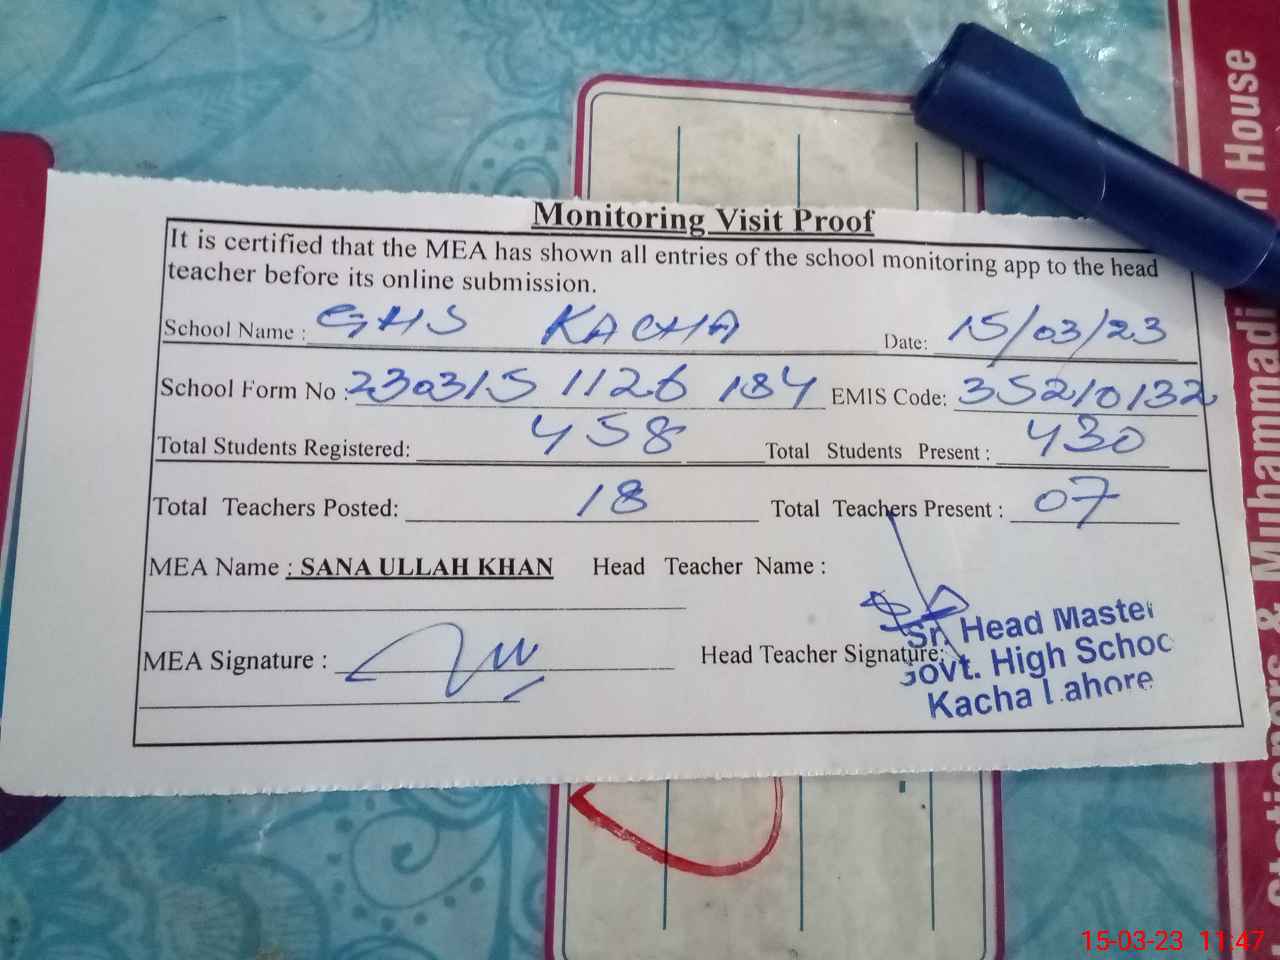 Monitoring Visit Proof
It is certified that the MEA has shown all entries of the school monitoring app to the head
teacher before its online submission.
School Name : GHS KACHA Date: 15/03/23
School Form No : 230315 1126 184 EMIS Code: 35210132
Total Students Registered: 458 Total Students Present : 430
Total Teachers Posted: 18 Total Teachers Present : 07
MEA Name : SANA ULLAH KHAN Head Teacher Name :
MEA Signature : Head Teacher Signature:
Sr. Head Master
Govt. High School
Kacha Lahore
& Muhammadi
House
15-03-23 11:47